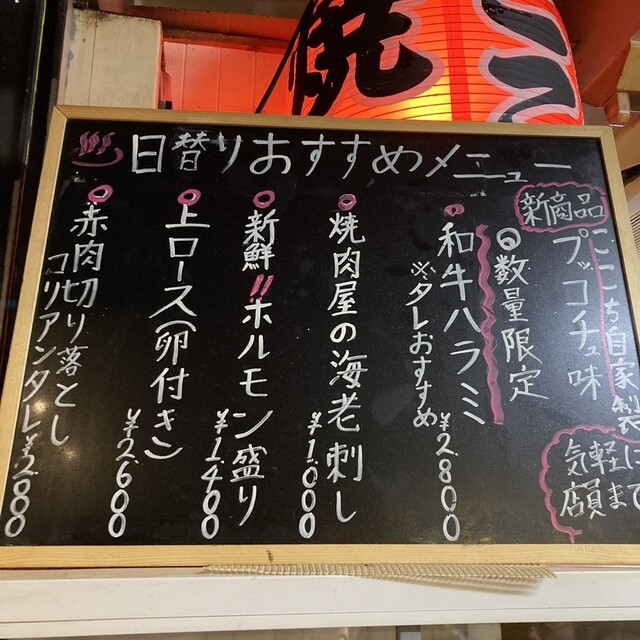 焼
日替りおすすめメニュー
新商品
ここち自家製
プッコチュ味
気軽に
店員まで
◎数量限定
和牛ハラミ
※タレおすすめ
¥2800
焼肉屋の海老刺し
¥1000
新鮮!!ホルモン盛り
¥1400
上ロース(卵付き)
¥2600
赤肉切り落とし
コリアンタレ¥2800